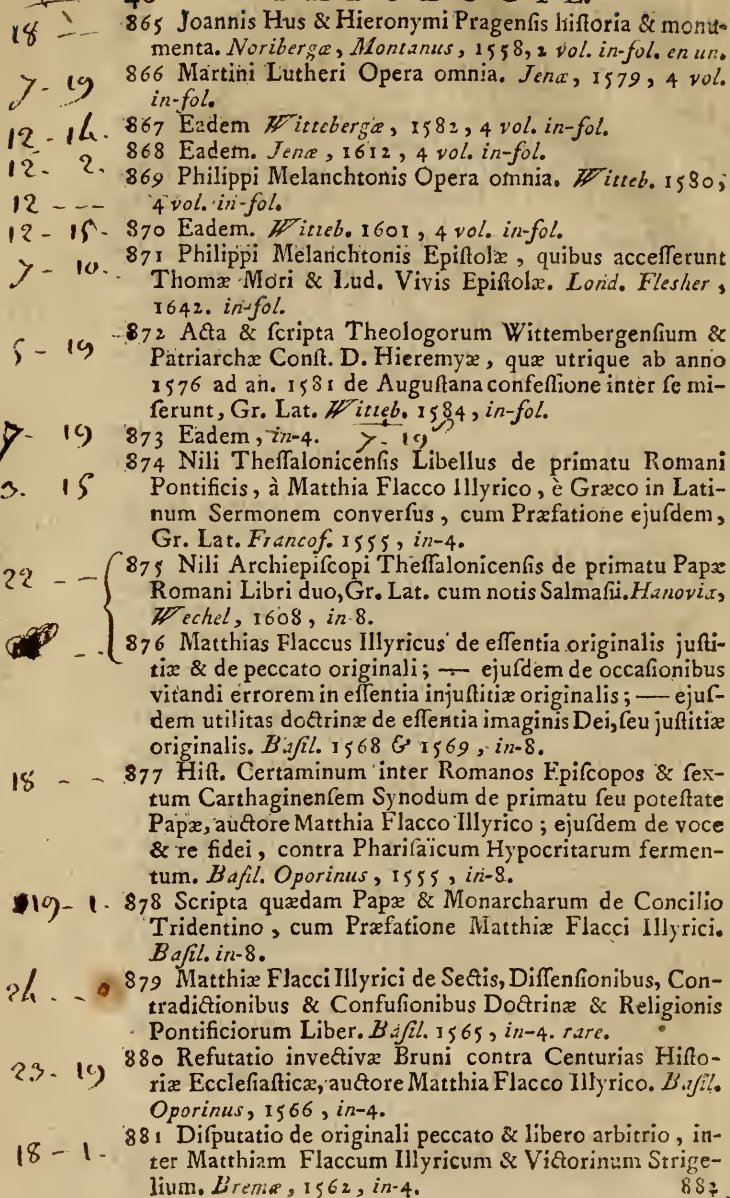 18 - - 865 Joannis Hus & Hieronymi Pragenſis hiſtoria & monu-
menta. Noribergæ, Montanus, 1558, 2 vol. in-fol. en un.
7 - 19 866 Martini Lutheri Opera omnia. Jenæ, 1579, 4 vol.
in-fol.
867 Eadem Wittebergæ, 1582, 4 vol. in-fol.
12. 2. 868 Eadem. Jenæ, 1612, 4 vol. in-fol.
869 Philippi Melanchtonis Opera omnia. Witteb. 1580,
12 - - - 4 vol. in-fol.
12 - 15 - 870 Eadem. Witteb. 1601, 4 vol. in-fol.
871 Philippi Melanchtonis Epiſtolæ, quibus acceſſerunt
7 - 10. Thomæ Mori & Lud. Vivis Epiſtolæ. Lond. Flesher,
1642. in-fol.
872 Acta & ſcripta Theologorum Wittembergenſium &
5 - 19 Patriarchæ Conſt. D. Hieremyæ, quæ utrique ab anno
1576 ad an. 1581 de Auguſtana confeſſione inter ſe mi-
ſerunt, Gr. Lat. Witteb. 1584, in-fol.
7 - 19 873 Eadem, in-4. 7 - 19
874 Nili Theſſalonicenſis Libellus de primatu Romani
3. 15 Pontificis, à Matthia Flacco Illyrico, è Græco in Lati-
num Sermonem converſus, cum Præfatione ejuſdem,
Gr. Lat. Francof. 1555, in-4.
875 Nili Archiepiſcopi Theſſalonicenſis de primatu Papæ
22 - - Romani Libri duo, Gr. Lat. cum notis Salmaſii. Hanoviæ,
Wechel, 1608, in-8.
876 Matthias Flaccus Illyricus de eſſentia originalis juſti-
tiæ & de peccato originali; — ejuſdem de occaſionibus
vitandi errorem in eſſentia injuſtitiæ originalis; — ejuſ-
dem utilitas doctrinæ de eſſentia imaginis Dei, ſeu juſtitiæ
originalis. Baſil. 1568 & 1569, in-8.
18 - - 877 Hiſt. Certaminum inter Romanos Epiſcopos & ſex-
tum Carthaginenſem Synodum de primatu ſeu poteſtate
Papæ, auctore Matthia Flacco Illyrico; ejuſdem de voce
& re fidei, contra Phariſaïcum Hypocritarum fermen-
tum. Baſil. Oporinus, 1555, in-8.
19 - 1. 878 Scripta quædam Papæ & Monarcharum de Concilio
Tridentino, cum Præfatione Matthiæ Flacci Illyrici.
Baſil. in-8.
879 Matthiæ Flacci Illyrici de Sectis, Diſſenſionibus, Con-
tradictionibus & Confuſionibus Doctrinæ & Religionis
Pontificiorum Liber. Baſil. 1565, in-4. rare.
23 - 19 880 Refutatio invectivæ Bruni contra Centurias Hiſto-
riæ Eccleſiaſticæ, auctore Matthia Flacco Illyrico. Baſil.
Oporinus, 1566, in-4.
18 - 1 - 881 Diſputatio de originali peccato & libero arbitrio, in-
ter Matthiam Flaccum Illyricum & Victorinum Strige-
lium. Bremæ, 1562, in-4. 882